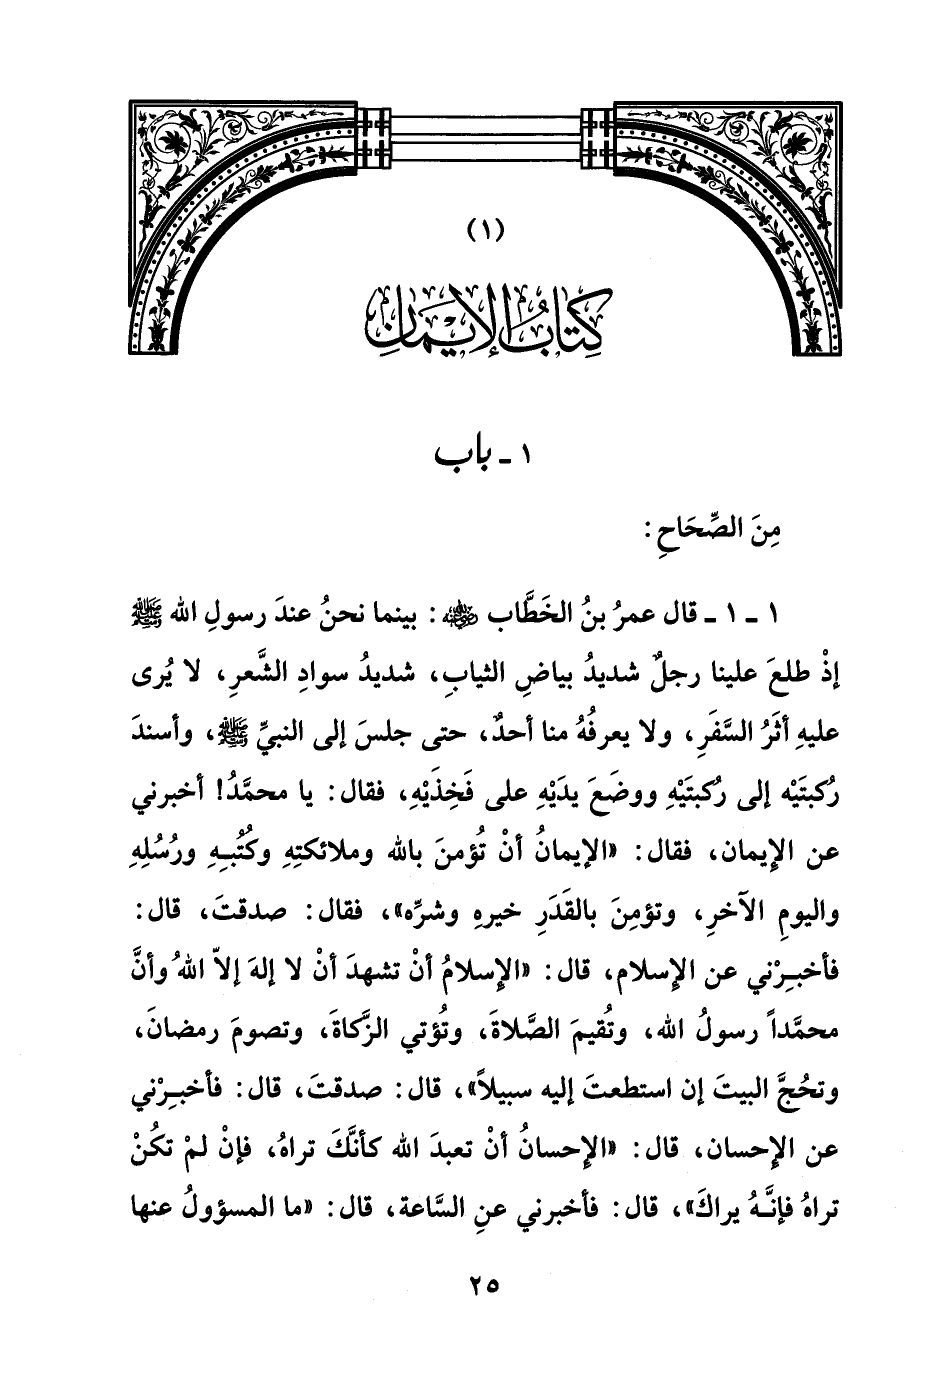 (١)
كِتَابُ الإِيمَانِ
١ ـ باب
مِنَ الصِّحَاحِ:
١ ـ ١ ـ قال عمرُ بنُ الخَطَّاب ﵁: بينما نحنُ عندَ رسولِ الله ﷺ
إذْ طلعَ علينا رجلٌ شديدُ بياضِ الثيابِ، شديدُ سوادِ الشَّعرِ، لا يُرى
عليهِ أثَرُ السَّفَرِ، ولا يعرفُهُ منا أحدٌ، حتى جلسَ إلى النبيِّ ﷺ، وأسندَ
رُكبتَيْه إلى رُكبتَيْهِ ووضَعَ يدَيْهِ على فَخِذَيْهِ، فقال: يا محمَّدُ! أخبرني
عن الإيمان، فقال: «الإيمانُ أنْ تُؤمنَ بالله وملائكتِهِ وكُتُبِهِ ورُسُلِهِ
واليومِ الآخرِ، وتؤمِنَ بالقَدَرِ خيرهِ وشرِّه»، فقال: صدقتَ، قال:
فأخبِرْني عن الإسلام، قال: «الإسلامُ أنْ تشهدَ أنْ لا إلهَ إلاّ اللهُ وأنَّ
محمَّداً رسولُ الله، وتُقيمَ الصَّلاةَ، وتُؤتي الزَّكاةَ، وتصومَ رمضانَ،
وتحُجَّ البيتَ إن استطعتَ إليه سبيلاً»، قال: صدقتَ، قال: فأخبِرْني
عن الإحسان، قال: «الإحسانُ أنْ تعبدَ الله كأنَّكَ تراهُ، فإنْ لمْ تكُنْ
تراهُ فإنَّهُ يراكَ»، قال: فأخبرني عنِ السَّاعة، قال: «ما المسؤولُ عنها
٢٥